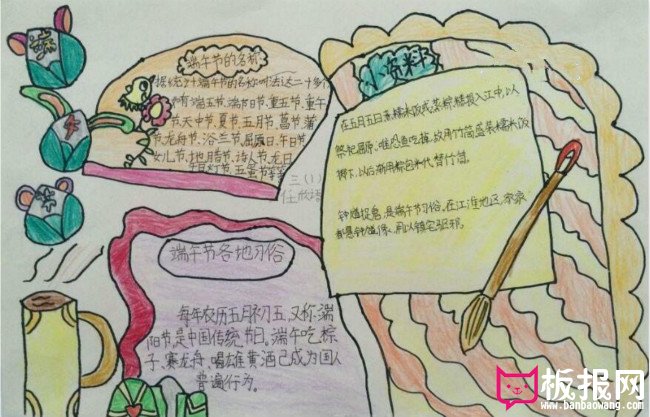 端午节
端午节的名称
据统计端午节的名称叫法达二十多个
如有端五节、端阳节、重五节、重午
节、天中节、夏节、五月节、菖节、蒲
节、龙舟节、浴兰节、屈原日、午日节、
女儿节、地腊节、诗人节、龙日、
午日、灯节、五蛋节等等
三(1)
小资料
在五月五日煮糯米饭或蒸粽糕投入江中,以
祭祀屈原,唯恐鱼吃掉,故用竹筒盛装糯米饭
掷下,以后渐用粽叶包米代替竹筒。
钟馗捉鬼,是端午节习俗。在江淮地区,家家
都悬钟馗像,用以镇宅驱邪。
端午节各地习俗
每年农历五月初五,又称端
阳节是中国传统节日。端午吃粽
子、赛龙舟、喝雄黄酒已成为国人
普遍行为。
板报网
www.banbaowang.com